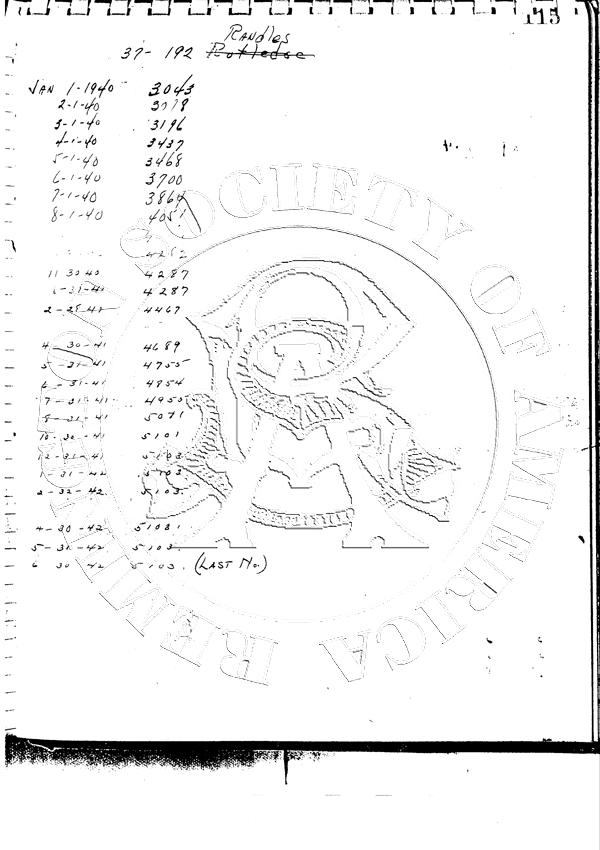 115
Randles
37- 192 Rutledge
JAN 1-1940 3043
2-1-40 3078
3-1-40 3196
4-1-40 3437
5-1-40 3468
6-1-40 3700
7-1-40 3864
8-1-40 4051
4252
11 30 40 4287
-31-41 4287
2-28-41 4467
4-30-41 4689
5-31-41 4755
6-31-41 4854
7-31-41 4950
8-31-41 5071
10-30-41 5101
12-31-41 5103
1-31-42 5103
2-32-42 5103.
4-30-42 5103.
5-31-42 5103.
6 30 42 5103. (LAST No.)
REMINGTON SOCIETY OF AMERICA